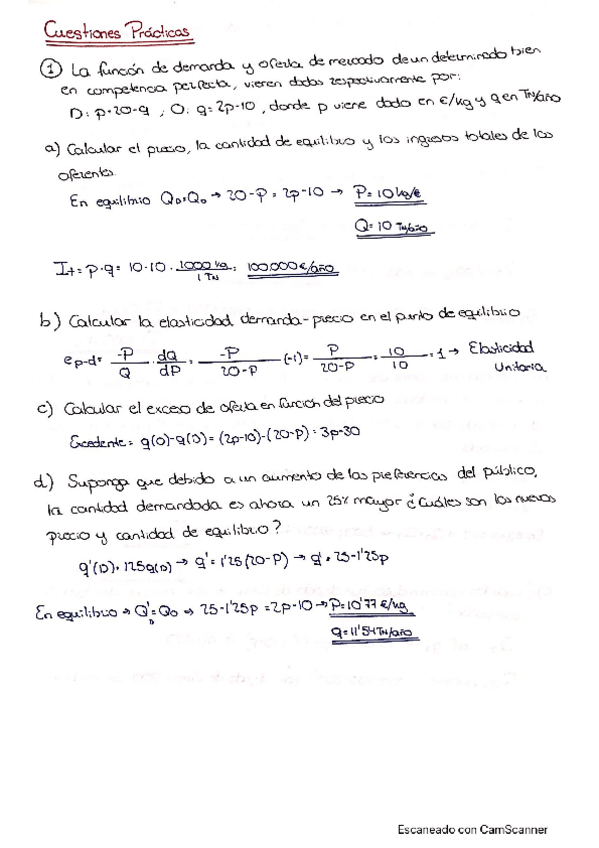 Cuestiones Prácticas
① La función de demanda y oferta de mercado de un determinado bien
en competencia perfecta, vienen dadas respectivamente por:
D: p=20-q ; O: q=2p-10, donde p viene dado en €/kg y q en TN/año
a) Calcular el precio, la cantidad de equilibrio y los ingresos totales de los
oferentes.
En equilibrio QD=QO → 20-P = 2p-10 → P=10 kg/€
Q=10 TN/año
It = p·q = 10·10 · 1000 kg / 1 TN = 100.000 €/año
b) Calcular la elasticidad demanda-precio en el punto de equilibrio
e p-d = -P/Q · dQ/dP = -P/20-P (-1) = P/20-P = 10/10 = 1 → Elasticidad
Unitaria
c) Calcular el exceso de oferta en función del precio
Excedente = q(O)-q(D) = (2p-10)-(20-p) = 3p-30
d) Suponga que debido a un aumento de las preferencias del público,
la cantidad demandada es ahora un 25% mayor ¿Cuáles son los nuevos
precio y cantidad de equilibrio?
q'(D) = 1'25q(D) → q' = 1'25(20-P) → q' = 25-1'25p
En equilibrio → Q'D = QO → 25-1'25p = 2p-10 → P=10'77 €/kg
q=11'54 TN/año
Escaneado con CamScanner